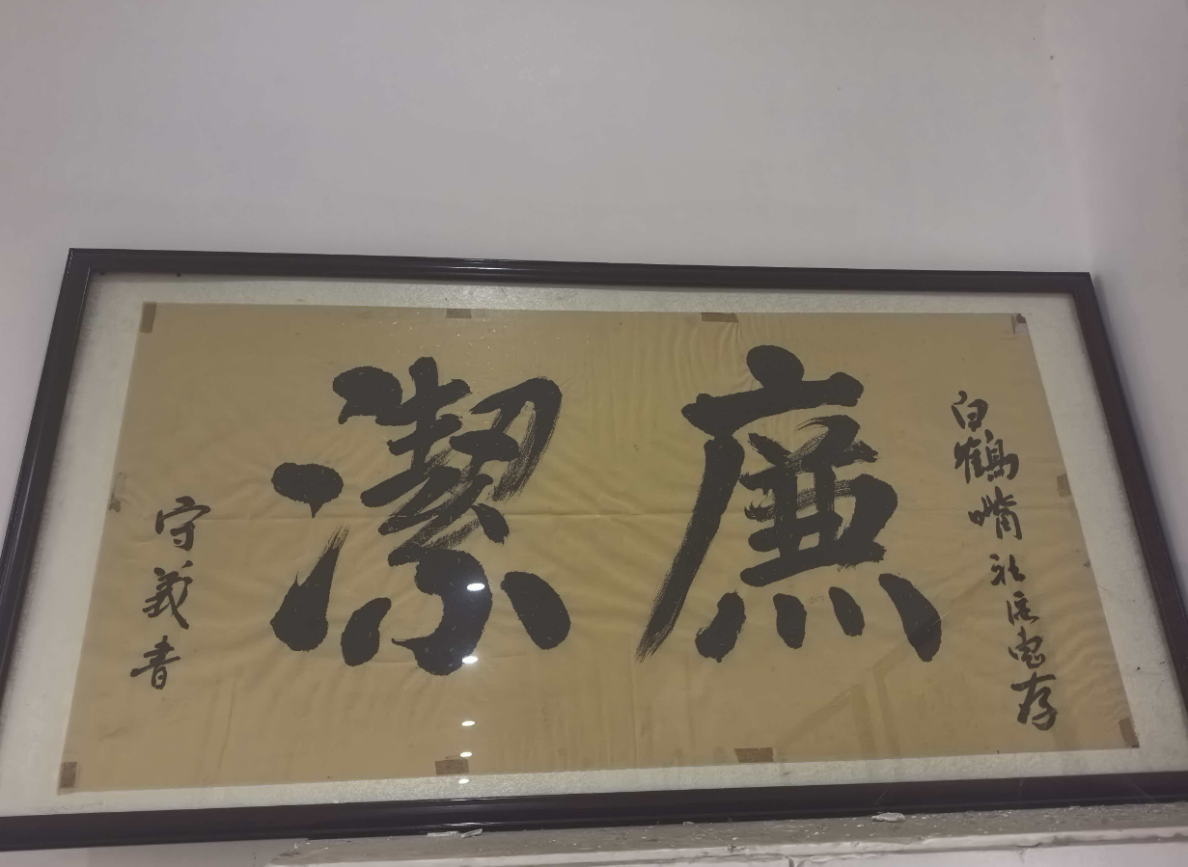 白鶴嘴社区惠存
廉潔
守義書